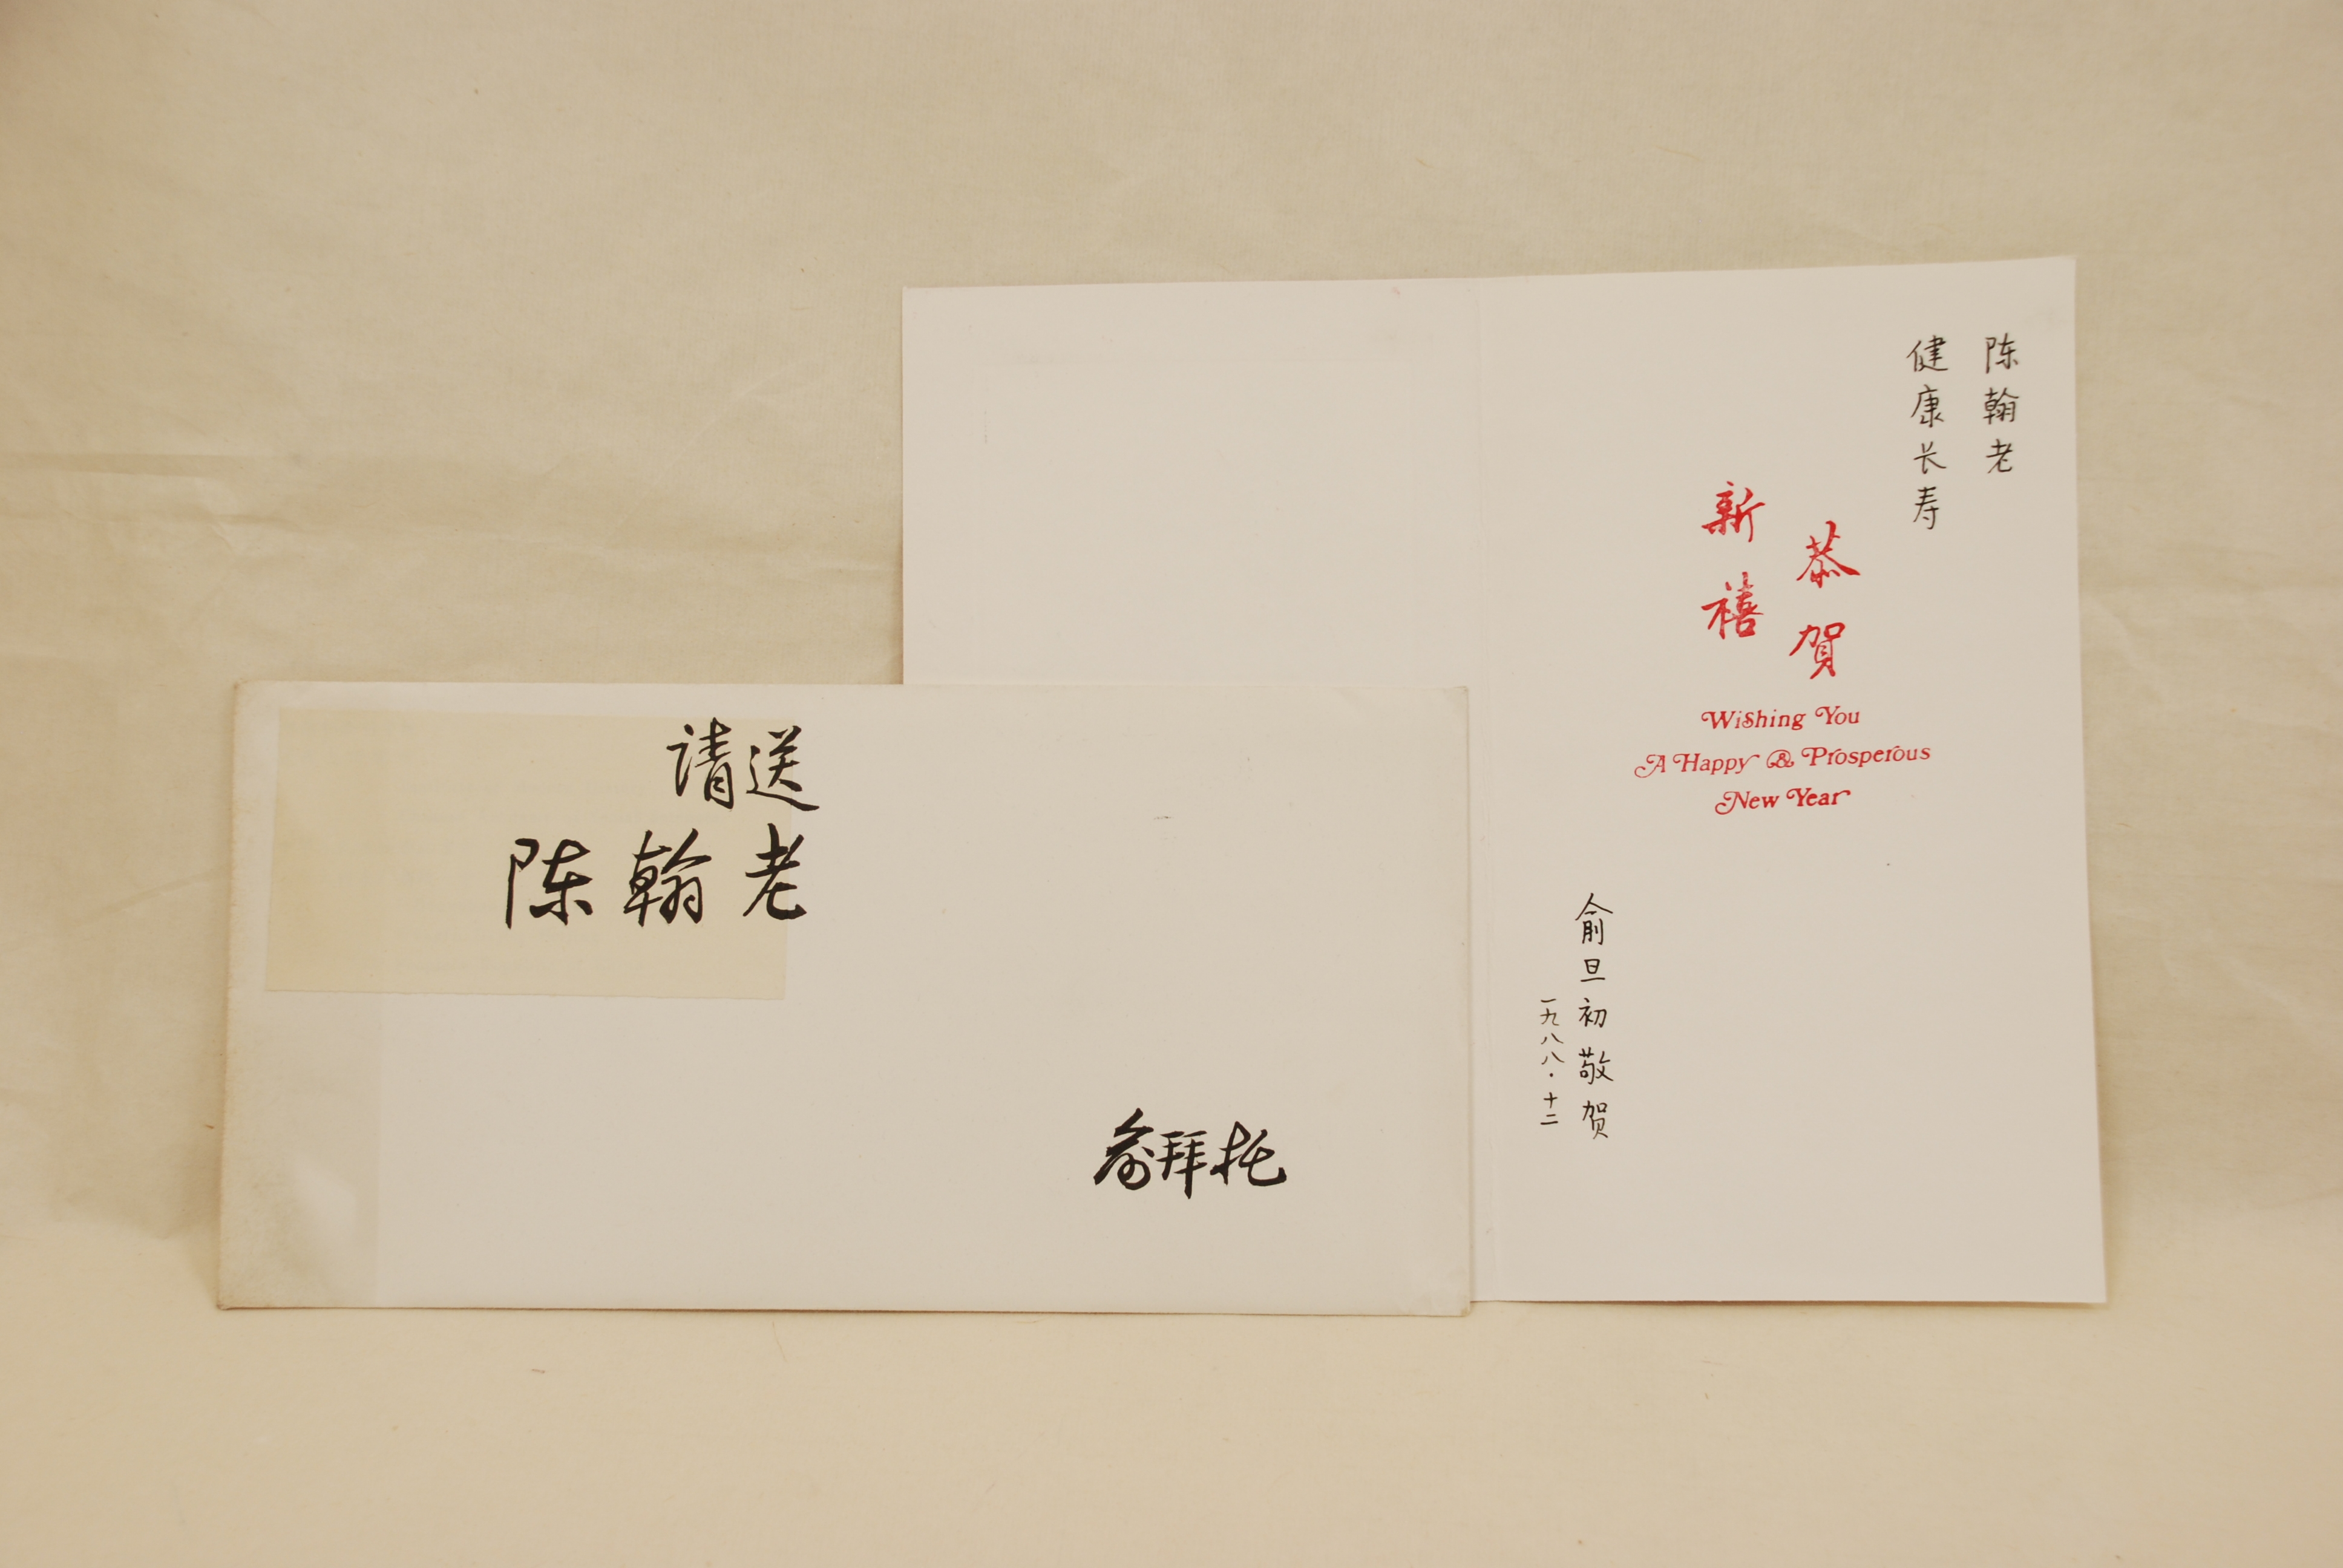 请送
陈翰老
俞拜托
陈翰老
健康长寿
恭贺
新禧
Wishing You
A Happy & Prosperous
New Year
俞旦初敬贺
一九八八·十二